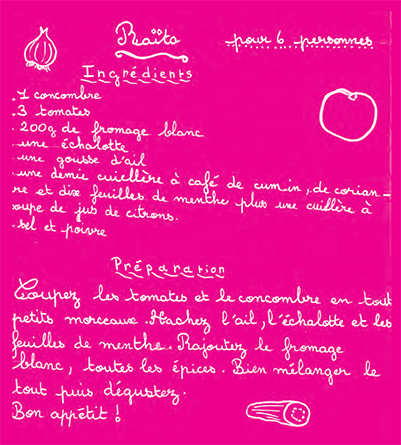 Raïta
pour 6 personnes
Ingrédients
.1 concombre
.3 tomates
.200g de fromage blanc
.une échalotte
.une gousse d'ail
.une demie cuiellère à café de cumin, de corian-
re et dix feuilles de menthe plus une cuillère à
oupe de jus de citrons.
.sel et poivre
Préparation
Coupez les tomates et le concombre en tout
petits morceaux. Hachez l'ail, l'échalotte et les
feuilles de menthe. Rajoutez le fromage
blanc, toutes les épices. Bien mélanger le
tout puis dégustez.
Bon appétit !